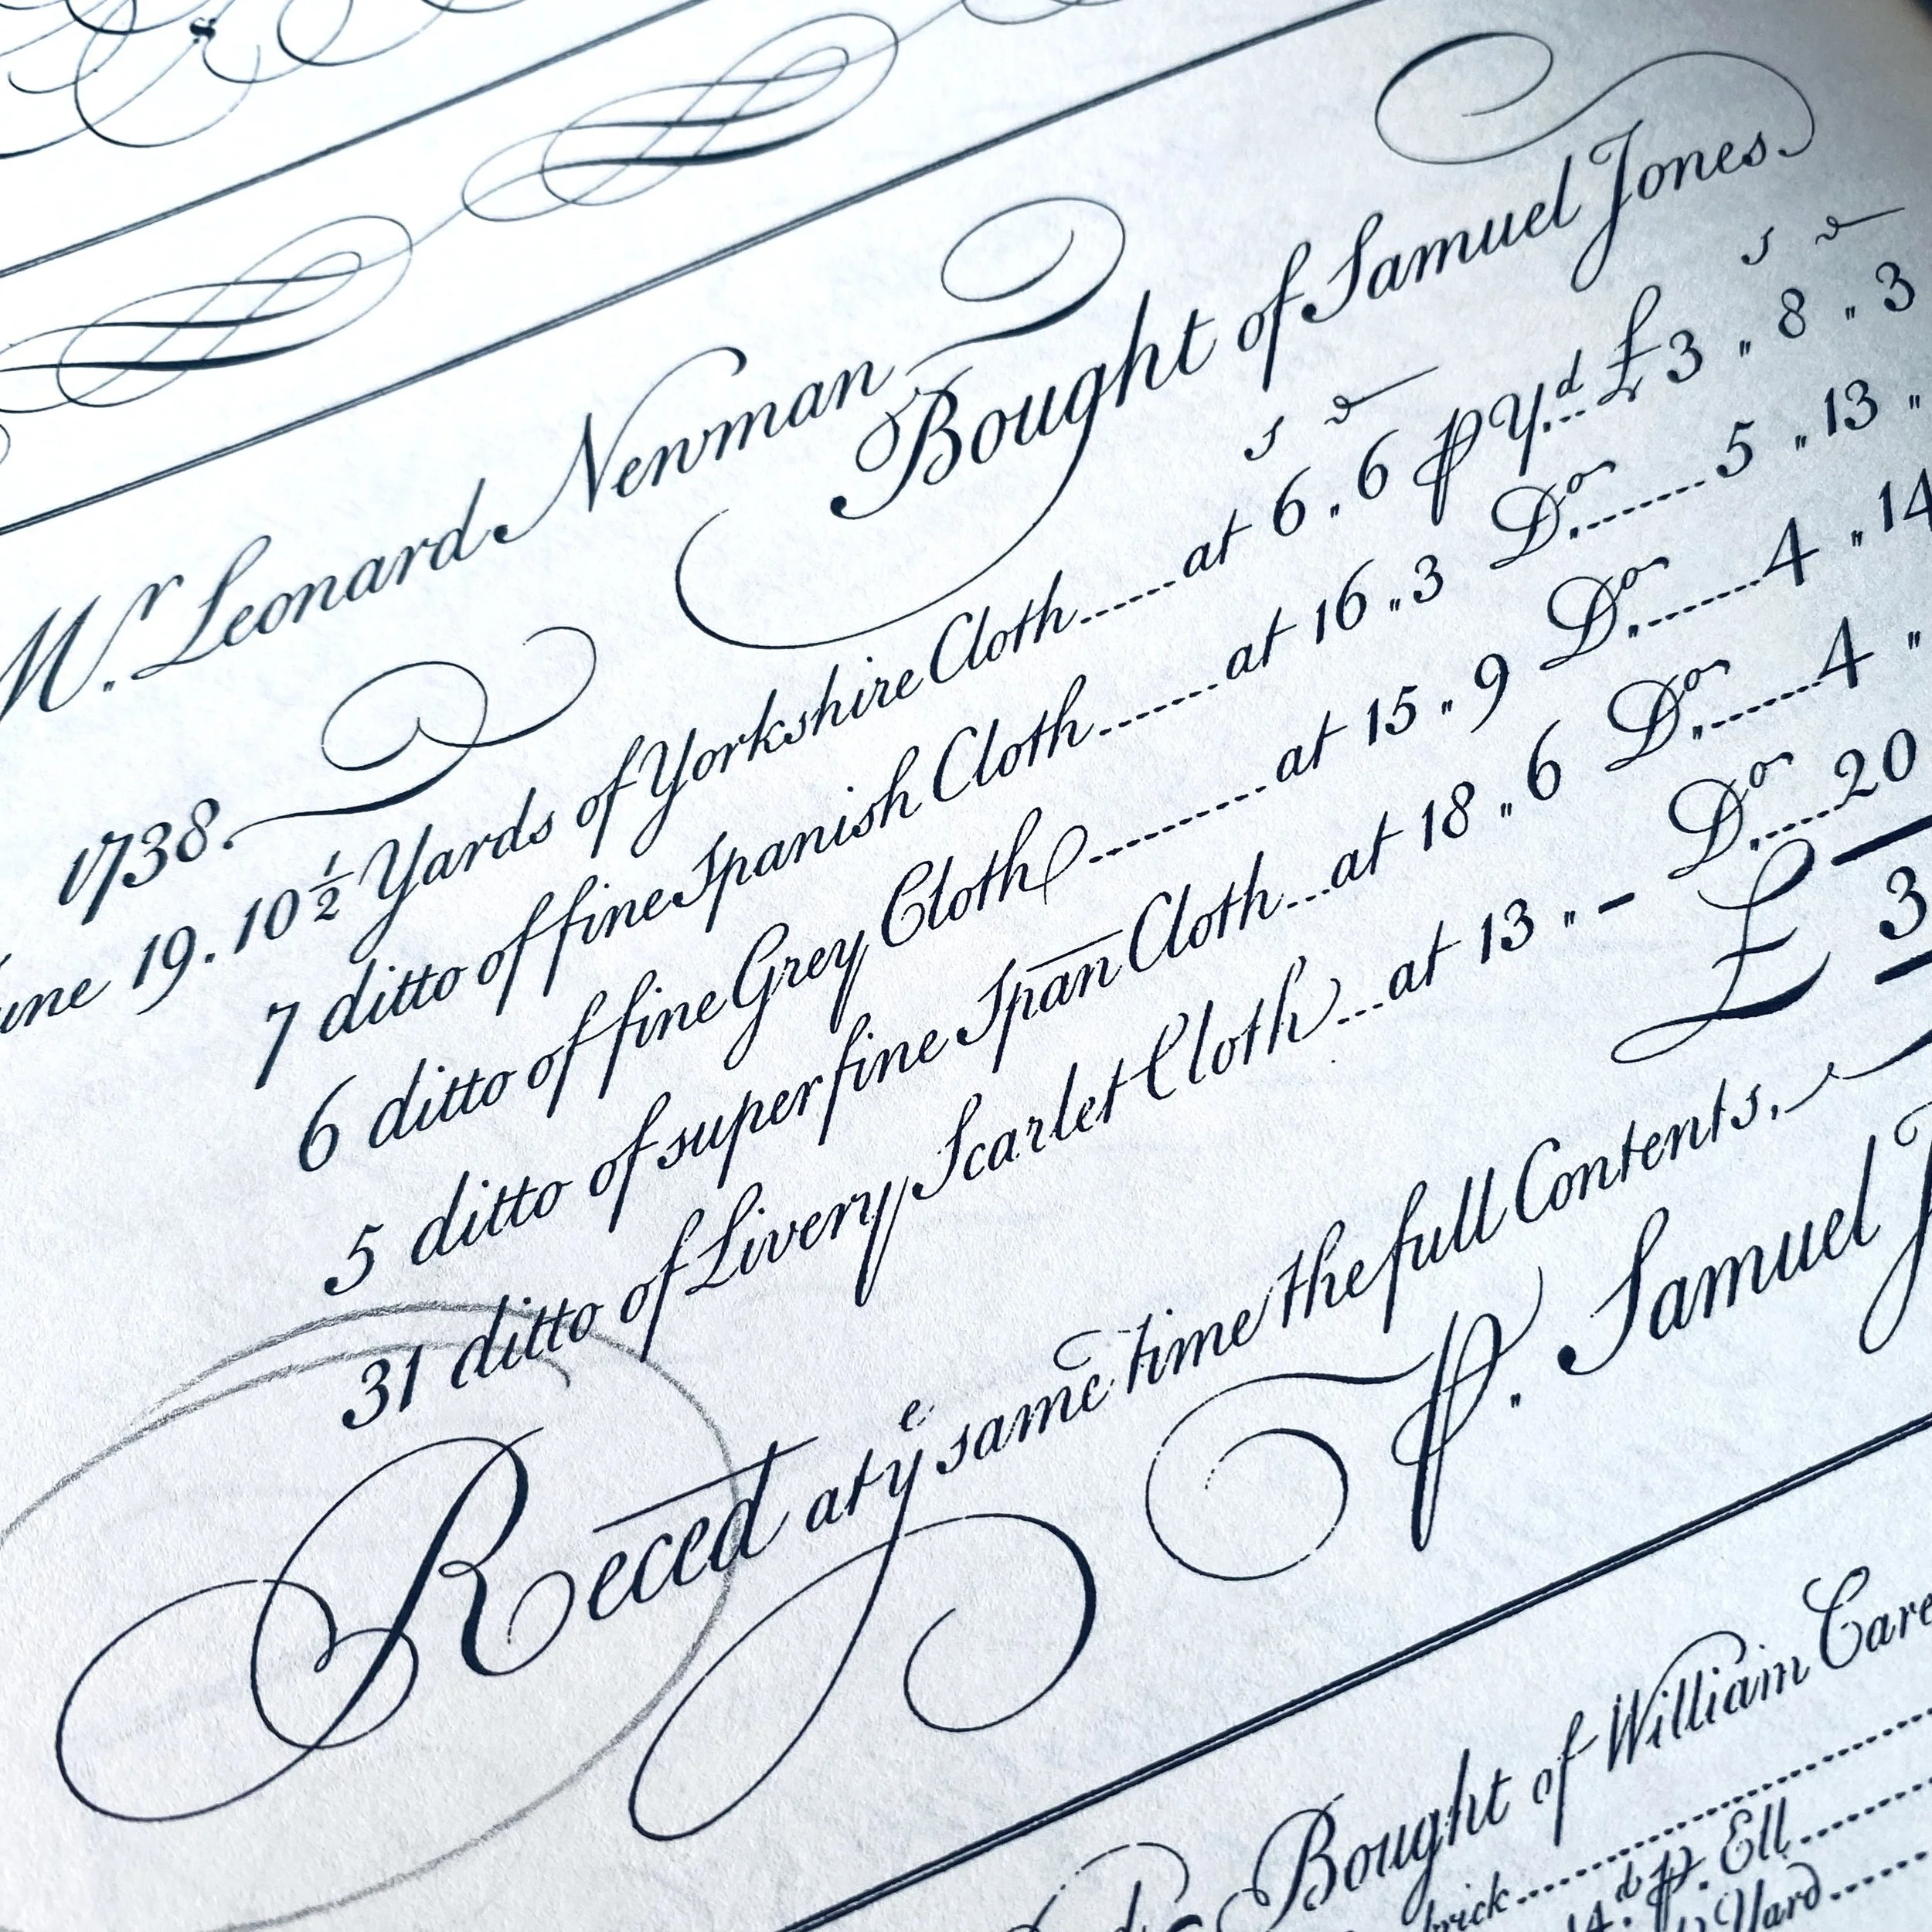 Mr. Leonard Newman
Bought of Samuel Jones
s d
1738.
June 19. 10 1/2 Yards of Yorkshire Cloth......at 6 „ 6 ꝑ Yd...£3 „ 8 „ 3
s d
7 ditto of fine Spanish Cloth........at 16 „ 3 Do........5 „ 13 „
6 ditto of fine Grey Cloth............at 15 „ 9 Do.......4 „ 14
5 ditto of superfine Span Cloth...at 18 „ 6 Do.......4 „
31 ditto of Livery Scarlet Cloth...at 13 „ - Do......20
£ 3
Reced at ye same time the full Contents,
ꝑ. Samuel J
Bought of William Care
ꝑ. Ell
Yard